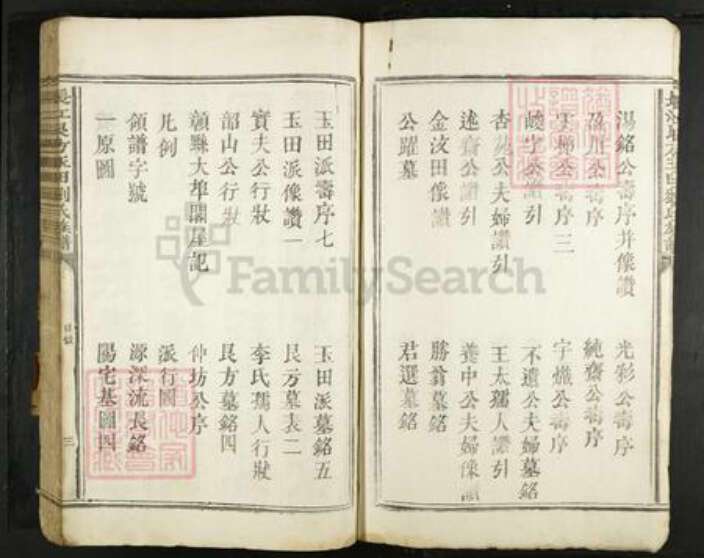 湯銘公壽序并像讚
光彩公壽序
盈川公壽序
純齋公壽序
公壽序三
宇熾公壽序
公讚引
不遺公夫婦墓銘
杏苑公夫婦讚引
王太孺人讚引
述齋公讚引
養中公夫婦像讚
金汶田像讚
勝翁墓銘
公躍墓
君選墓銘
玉田派壽序七
玉田派墓銘五
玉田派像讚一
艮方墓表二
寶夫公行狀
李氏孺人行狀
韶山公行狀
艮方墓銘四
贛縣大埠開居記
仲坊公序
凡例
派行圖
領譜字號
源深流長銘
一原圖
陽宅基圖四
目錄
三
FamilySearch